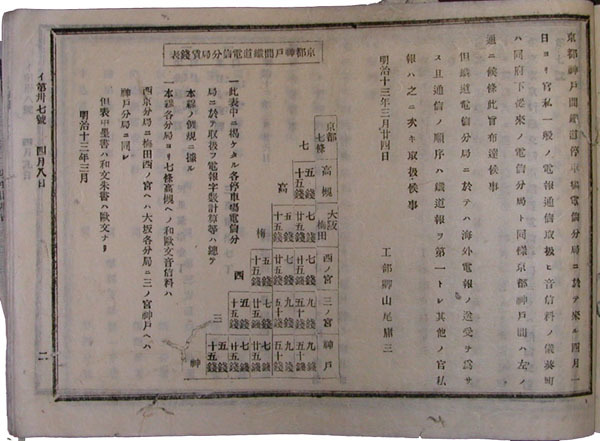 京都神戸間鐵道停車場電信分局ニ於テ來ル四月一
日ヨリ官私一般ノ電報通信取扱ヒ音信料ノ儀
ハ同府下從來ノ電信分局ト同樣京都神戸間ハ左ノ
通ニ候條此旨布達候事
但鐵道電信分局ニ於テハ海外電報ノ送受ヲ爲サ
ス且通信ノ順序ハ鐵道報ヲ第一トシ其他ノ官私
報ハ之ニ次キ取扱候事
明治十三年三月廿四日
工部卿山尾庸三
京都神戸間鐵道電信分局賃錢表
京都七條
七 高槻
五錢 十五錢
高 大阪梅田
七錢 廿五錢
五錢 十五錢
梅 西ノ宮
九錢 五十錢
七錢 廿五錢
五錢 十五錢
西 三ノ宮
九錢 五十錢
九錢 五十錢
七錢 廿五錢
五錢 十五錢
三 神戸
九錢 五十錢
九錢 五十錢
七錢 廿五錢
七錢 廿五錢
五錢 十五錢
神
一此表中ニ揭ケタル各停車場電信分
局ニ於テ取扱フ電報字數計算等ハ總テ
本線ノ例規ニ據ル
一本線各分局ヨリ七條高槻ヘノ和歐文音信料ハ
西京分局ニ梅田西ノ宮ヘハ大坂各分局ニ三ノ宮神戸ヘハ
神戸分局ニ同シ
但表中墨書ハ和文朱書ハ歐文ナリ
明治十三年三月
イ第卅七號 四月八日
二